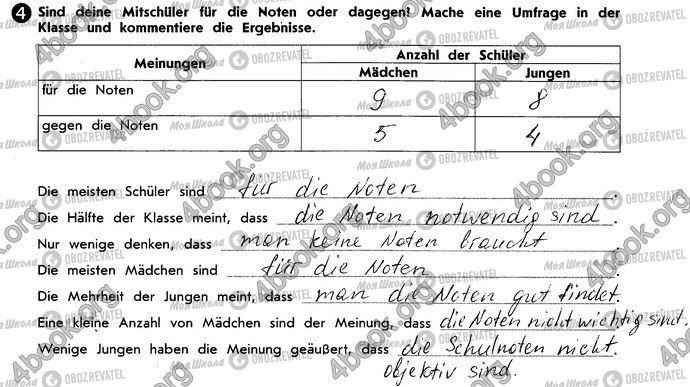 4 Sind deine Mitschüler für die Noten oder dagegen? Mache eine Umfrage in der
Klasse und kommentiere die Ergebnisse.
Meinungen Anzahl der Schüler
Mädchen Jungen
für die Noten 9 8
gegen die Noten 5 4
Die meisten Schüler sind für die Noten.
Die Hälfte der Klasse meint, dass die Noten notwendig sind.
Nur wenige denken, dass man keine Noten braucht.
Die meisten Mädchen sind für die Noten.
Die Mehrheit der Jungen meint, dass man die Noten gut findet.
Eine kleine Anzahl von Mädchen sind der Meinung, dass die Noten nicht wichtig sind.
Wenige Jungen haben die Meinung geäußert, dass die Schulnoten nicht
objektiv sind.
4book.org
Моя Школа OBOZREVATEL